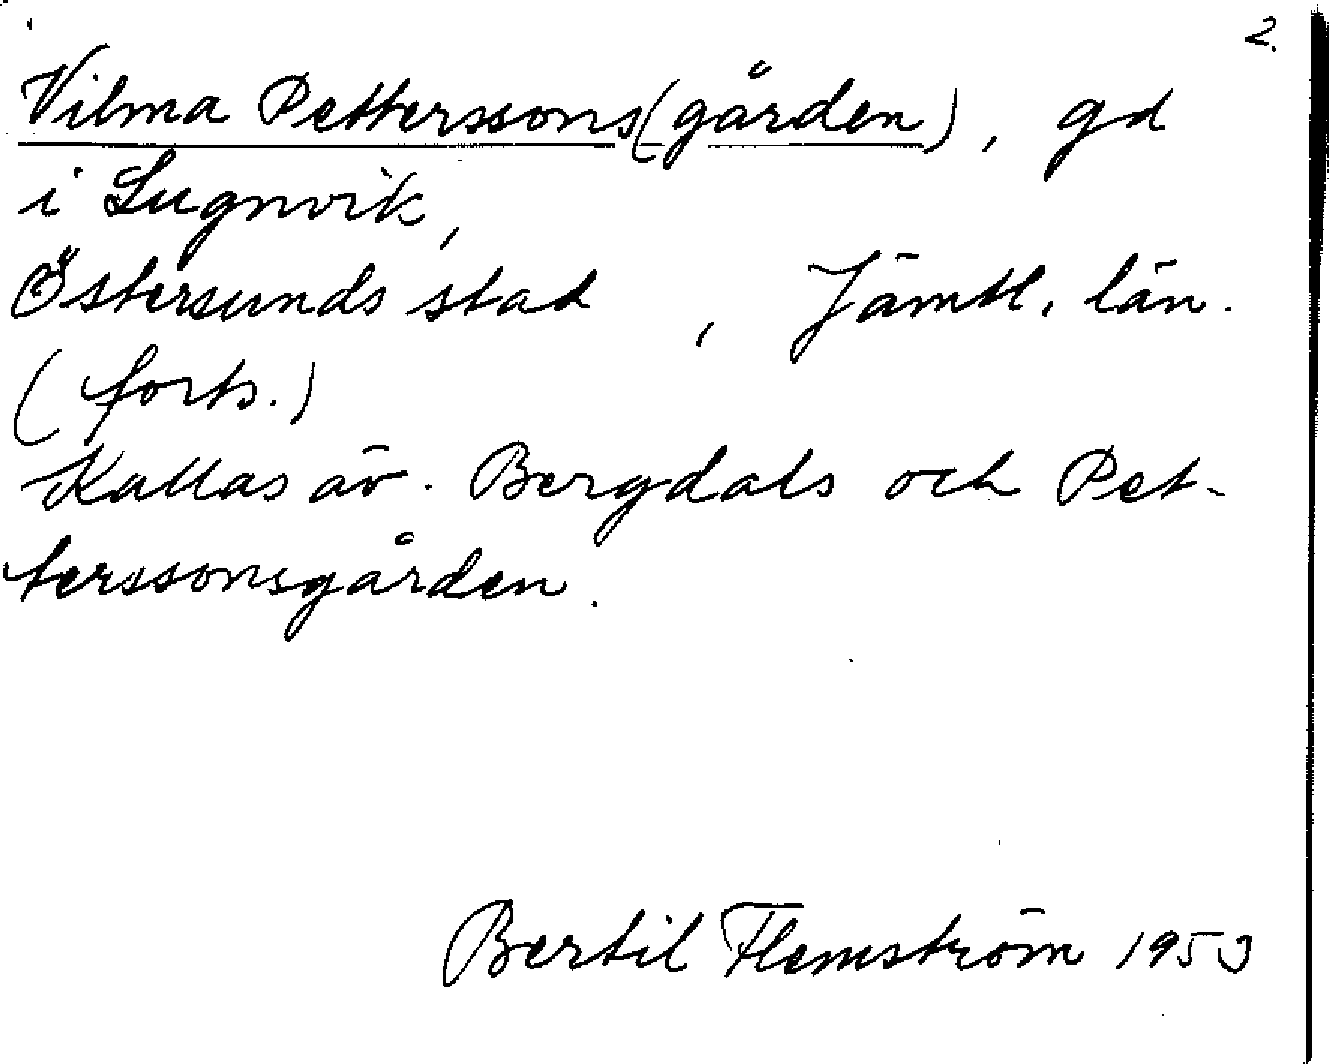 2.
Vilma Petterssons(gården), gd
i Lugnvik,
Östersunds stad, Jämtl. län.
(forts.)
Kallas äv. Bergdals och Pet-
terssonsgården.
Bertil Flemström 1953